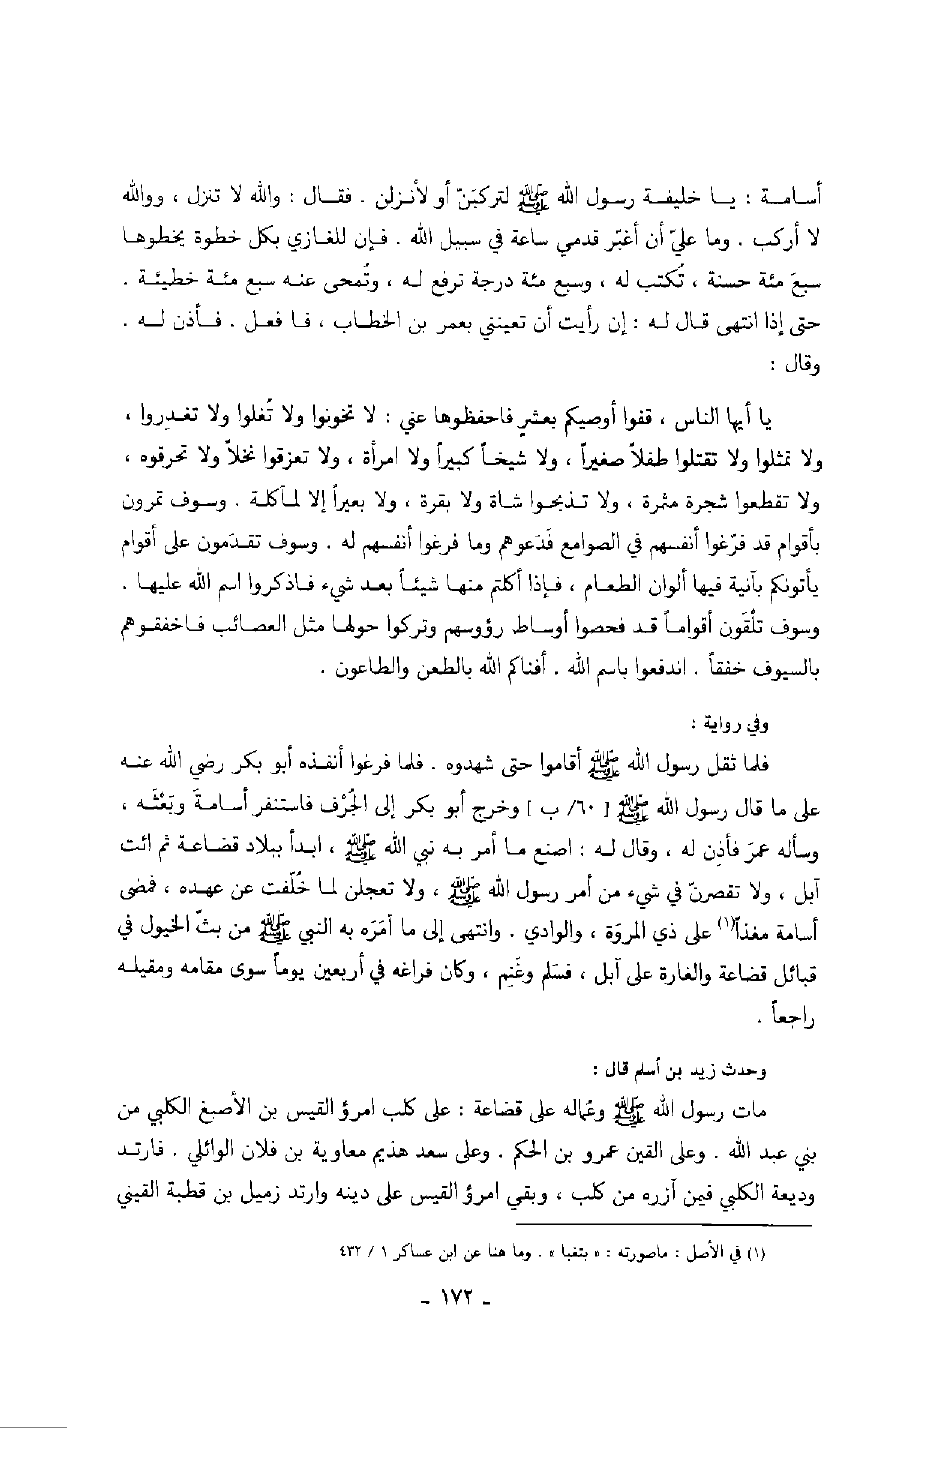 أسامة : يا خليفة رسول الله ﷺ لتركبَنّ أو لأنزلن . فقال : والله لا تنزل ، ووالله
لا أركب . وما عليّ أن أغبّر قدمي ساعة في سبيل الله . فإن للغازي بكل خطوة يخطوها
سبعَ مئة حسنة ، تُكتب له ، وسبع مئة درجة ترفع له ، وتُمحى عنه سبع مئة خطيئة .
حتى إذا انتهى قال له : إن رأيت أن تعينني بعمر بن الخطاب ، فافعل . فأذن له .
وقال :
يا أيها الناس ، قفوا أوصيكم بعشرٍ فاحفظوها عني : لا تخونوا ولا تُغلوا ولا تغدِروا ،
ولا تمثلوا ولا تقتلوا طفلاً صغيراً ، ولا شيخاً كبيراً ولا امرأة ، ولا تعزقوا نخلاً ولا تحرقوه ،
ولا تقطعوا شجرة مثمرة ، ولا تذبحوا شاة ولا بقرة ، ولا بعيراً إلا لمأكلة . وسوف تمرون
بأقوام قد فرّغوا أنفسهم في الصوامع فَدَعوهم وما فرغوا أنفسهم له . وسوف تقدَمون على أقوام
يأتونكم بآنية فيها ألوان الطعام ، فإذا أكلتم منها شيئاً بعد شيء فاذكروا اسم الله عليها .
وسوف تلْقَون أقواماً قد فحصوا أوساط رؤوسهم وتركوا حولها مثل العصائب فاخفقوهم
بالسيوف خفقاً . اندفعوا باسم الله . أفناكم الله بالطعن والطاعون .
وفي رواية :
فلما ثقل رسول الله ﷺ أقاموا حتى شهدوه . فلما فرغوا أنفذه أبو بكر رضي الله عنه
على ما قال رسول الله ﷺ [ ٦٠/ ب ] وخرج أبو بكر إلى الجُرْف فاستنفر أسامةَ وبَعْثَه ،
وسأله عمرَ فأذِن له ، وقال له : اصنع ما أمر به نبي الله ﷺ ، ابدأ ببلاد قضاعة ثم ائت
آبل ، ولا تقصرنّ في شيء من أمر رسول الله ﷺ ، ولا تعجلن لما خُلّفت عن عهده ، فمضى
أسامة مغذاً(١) على ذي المروَة ، والوادي . وانتهى إلى ما أمَرَه به النبي ﷺ من بثّ الخيول في
قبائل قضاعة والغارة على آبل ، فسَلم وغَنِم ، وكان فراغه في أربعين يوماً سوى مقامه ومقيله
راجعاً .
وحدث زيد بن أسلم قال :
مات رسول الله ﷺ وعُماله على قضاعة : على كلب امرؤ القيس بن الأصبغ الكلبي من
بني عبد الله . وعلى القين عمرو بن الحكم . وعلى سعد هذيم معاوية بن فلان الوائلي . فارتد
وديعة الكلبي فيمن آزره من كلب ، وبقي امرؤ القيس على دينه وارتد زميل بن قطبة القيني
(١) في الأصل : ماصورته : « بتغبا » . وما هنا عن ابن عساكر ١ / ٤٣٢
ـ ١٧٢ ـ